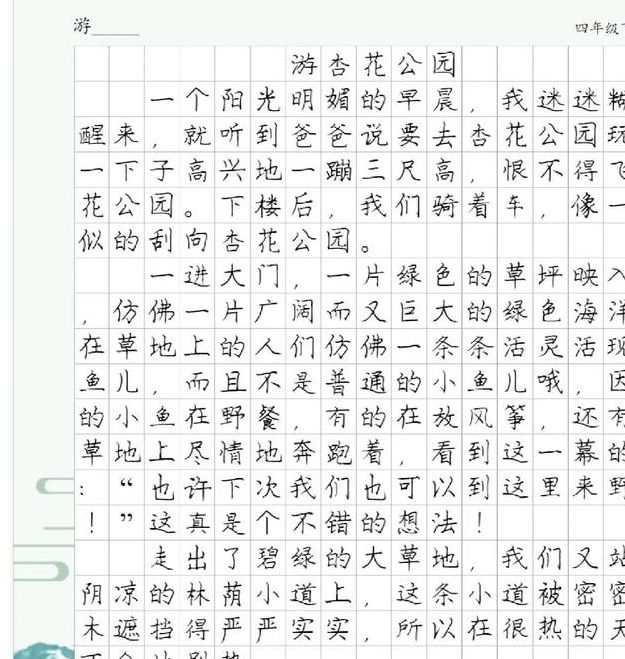 游____
四年级
游杏花公园
一个阳光明媚的早晨，我迷迷糊
醒来，就听到爸爸说要去杏花公园玩
一下子高兴地一蹦三尺高，恨不得飞
花公园。下楼后，我们骑着车，像一
似的刮向杏花公园。
一进大门，一片绿色的草坪映入
，仿佛一片广阔而又巨大的绿色海洋
在草地上的人们仿佛一条条活灵活现
鱼儿，而且不是普通的小鱼儿哦，因
的小鱼在野餐，有的在放风筝，还有
草地上尽情地奔跑着，看到这一幕的
：“也许下次我们也可以到这里来野
！”这真是个不错的想法！
走出了碧绿的大草地，我们又站
阴凉的林荫小道上，这条小道被密密
木遮挡得严严实实，所以在很热的天